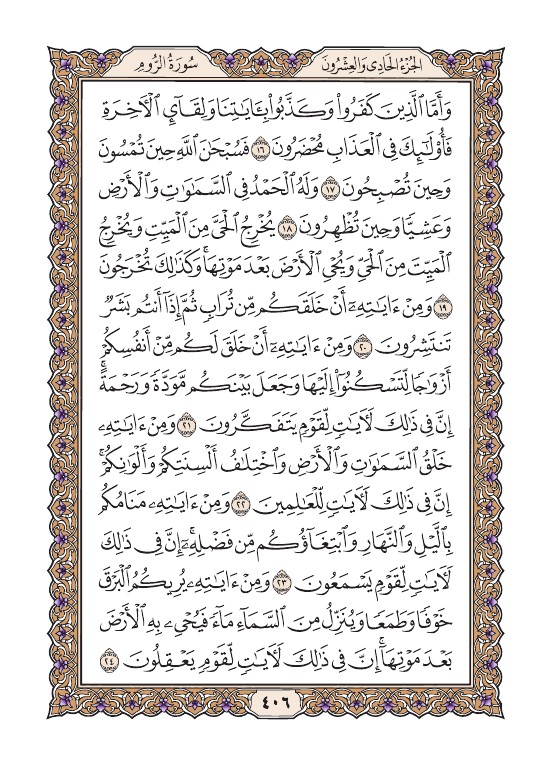 سُورَةُ الرُّومِ
الجُزْءُ الحَادِي وَالعِشْرُونَ
وَأَمَّا ٱلَّذِينَ كَفَرُواْ وَكَذَّبُواْ بِـَٔايَٰتِنَا وَلِقَآيِٕ ٱلۡأٓخِرَةِ
فَأُوْلَٰٓئِكَ فِي ٱلۡعَذَابِ مُحۡضَرُونَ ١٦ فَسُبۡحَٰنَ ٱللَّهِ حِينَ تُمۡسُونَ
وَحِينَ تُصۡبِحُونَ ١٧ وَلَهُ ٱلۡحَمۡدُ فِي ٱلسَّمَٰوَٰتِ وَٱلۡأَرۡضِ
وَعَشِيّٗا وَحِينَ تُظۡهِرُونَ ١٨ يُخۡرِجُ ٱلۡحَيَّ مِنَ ٱلۡمَيِّتِ وَيُخۡرِجُ
ٱلۡمَيِّتَ مِنَ ٱلۡحَيِّ وَيُحۡيِ ٱلۡأَرۡضَ بَعۡدَ مَوۡتِهَاۚ وَكَذَٰلِكَ تُخۡرَجُونَ
١٩ وَمِنۡ ءَايَٰتِهِۦٓ أَنۡ خَلَقَكُم مِّن تُرَابٖ ثُمَّ إِذَآ أَنتُم بَشَرٞ
تَنتَشِرُونَ ٢٠ وَمِنۡ ءَايَٰتِهِۦٓ أَنۡ خَلَقَ لَكُم مِّنۡ أَنفُسِكُمۡ
أَزۡوَٰجٗا لِّتَسۡكُنُوٓاْ إِلَيۡهَا وَجَعَلَ بَيۡنَكُم مَّوَدَّةٗ وَرَحۡمَةًۚ
إِنَّ فِي ذَٰلِكَ لَأٓيَٰتٖ لِّقَوۡمٖ يَتَفَكَّرُونَ ٢١ وَمِنۡ ءَايَٰتِهِۦ
خَلۡقُ ٱلسَّمَٰوَٰتِ وَٱلۡأَرۡضِ وَٱخۡتِلَٰفُ أَلۡسِنَتِكُمۡ وَأَلۡوَٰنِكُمۡۚ
إِنَّ فِي ذَٰلِكَ لَأٓيَٰتٖ لِّلۡعَٰلِمِينَ ٢٢ وَمِنۡ ءَايَٰتِهِۦ مَنَامُكُم
بِٱلَّيۡلِ وَٱلنَّهَارِ وَٱبۡتِغَآؤُكُم مِّن فَضۡلِهِۦٓۚ إِنَّ فِي ذَٰلِكَ
لَأٓيَٰتٖ لِّقَوۡمٖ يَسۡمَعُونَ ٢٣ وَمِنۡ ءَايَٰتِهِۦ يُرِيكُمُ ٱلۡبَرۡقَ
خَوۡفٗا وَطَمَعٗا وَيُنَزِّلُ مِنَ ٱلسَّمَآءِ مَآءٗ فَيُحۡيِۦ بِهِ ٱلۡأَرۡضَ
بَعۡدَ مَوۡتِهَآۚ إِنَّ فِي ذَٰلِكَ لَأٓيَٰتٖ لِّقَوۡمٖ يَعۡقِلُونَ ٢٤
٤٠٦